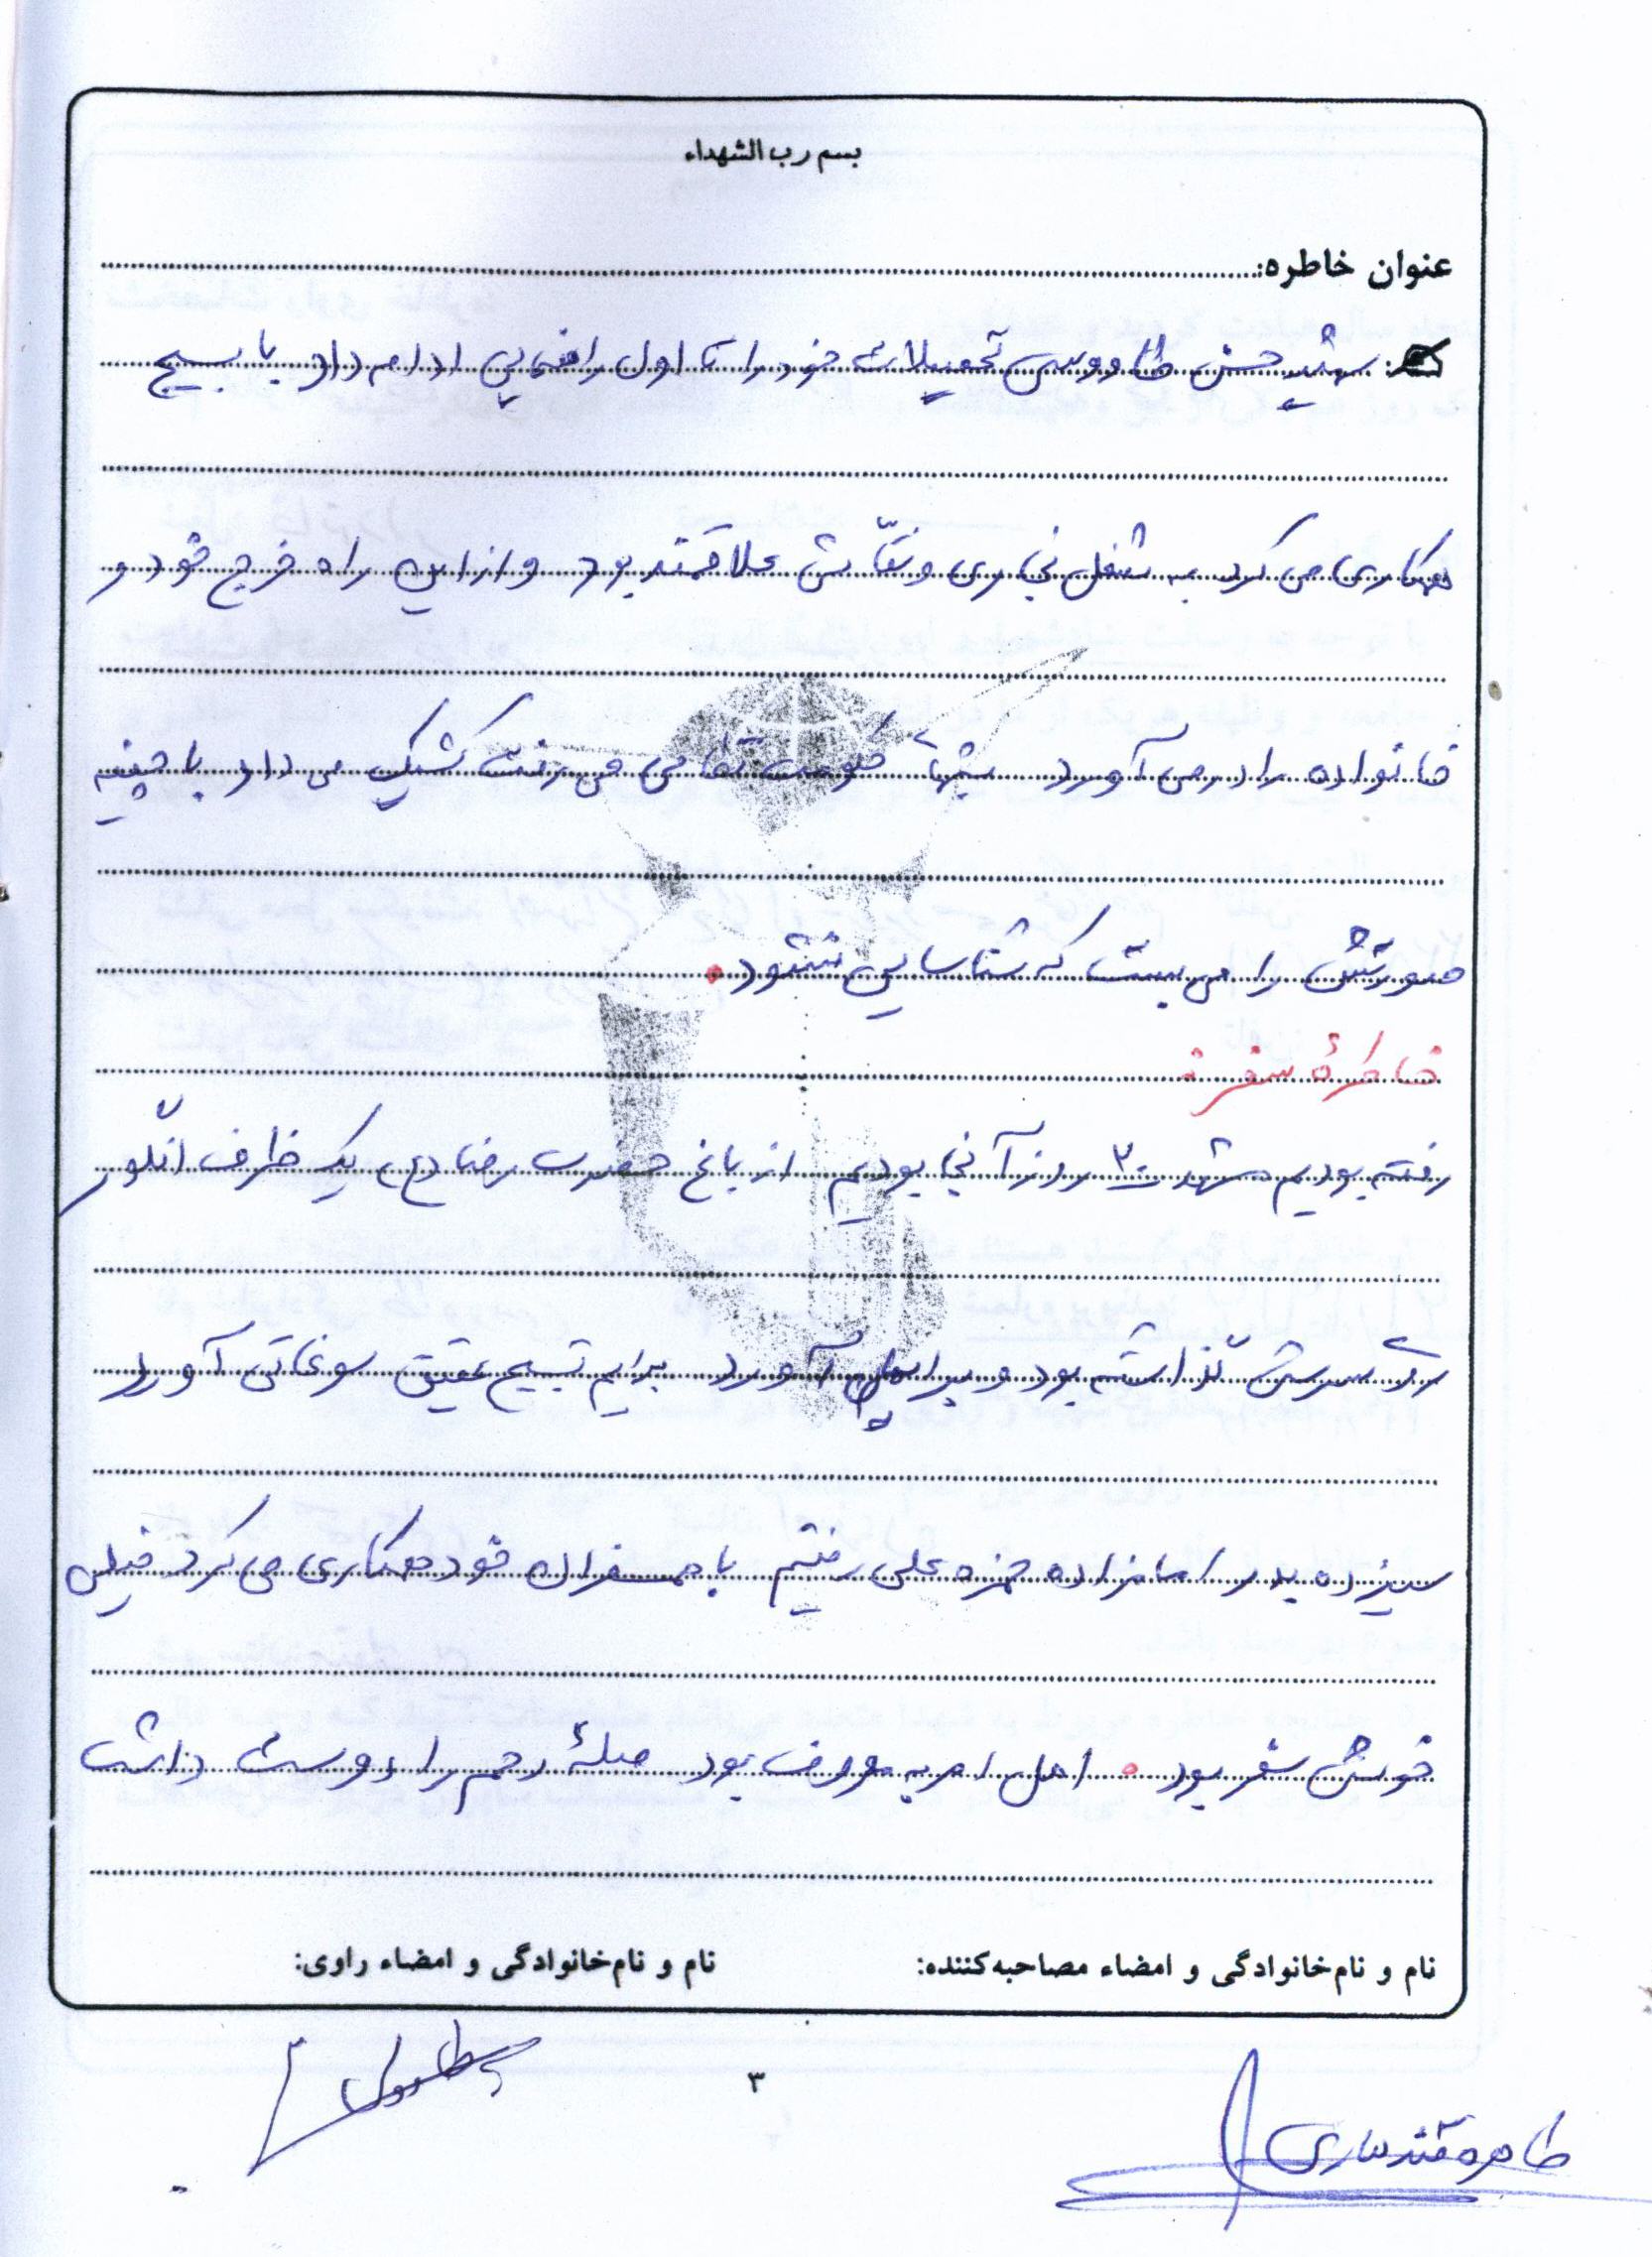 بسم رب الشهداء
عنوان خاطره:
شهید حسن طاووسی تحصیلات خود را تا اول راهنمایی ادامه داد. با بسیج
همکاری می کرد به شغل نجاری و نقاشی علاقمند بود و از این راه خرج خود و
خانواده را در می آورد شبها حکومت نظامی می رفت کشیک می داد با چفیه
صورتش را می بست که شناسایی نشود.
خاطرهٔ سفر:
رفته بودیم مشهد ۳۰ روز آنجا بودیم از باغ حضرت رضا (ع) یک ظرف انگور
روی سرش گذاشته بود و برایمان آورد برایم تسبیح عقیق سوغاتی آورد
سیزده بدر امامزاده حمزه علی رفتیم با همسفران خود همکاری می کرد خیلی
خوش سفر بود. اهل امر به معروف بود صلهٔ رحم را دوست داشت
نام و نام‌خانوادگی و امضاء مصاحبه‌کننده: نام و نام‌خانوادگی و امضاء راوی:
۳
طاهره